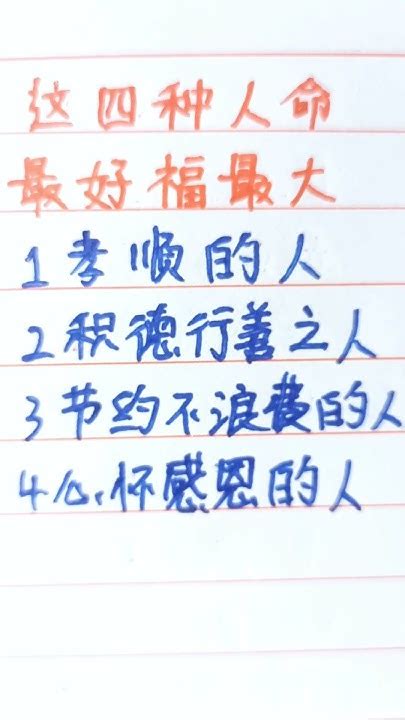 这四种人命
最好福最大
1孝顺的人
2积德行善之人
3节约不浪费的人
4心怀感恩的人